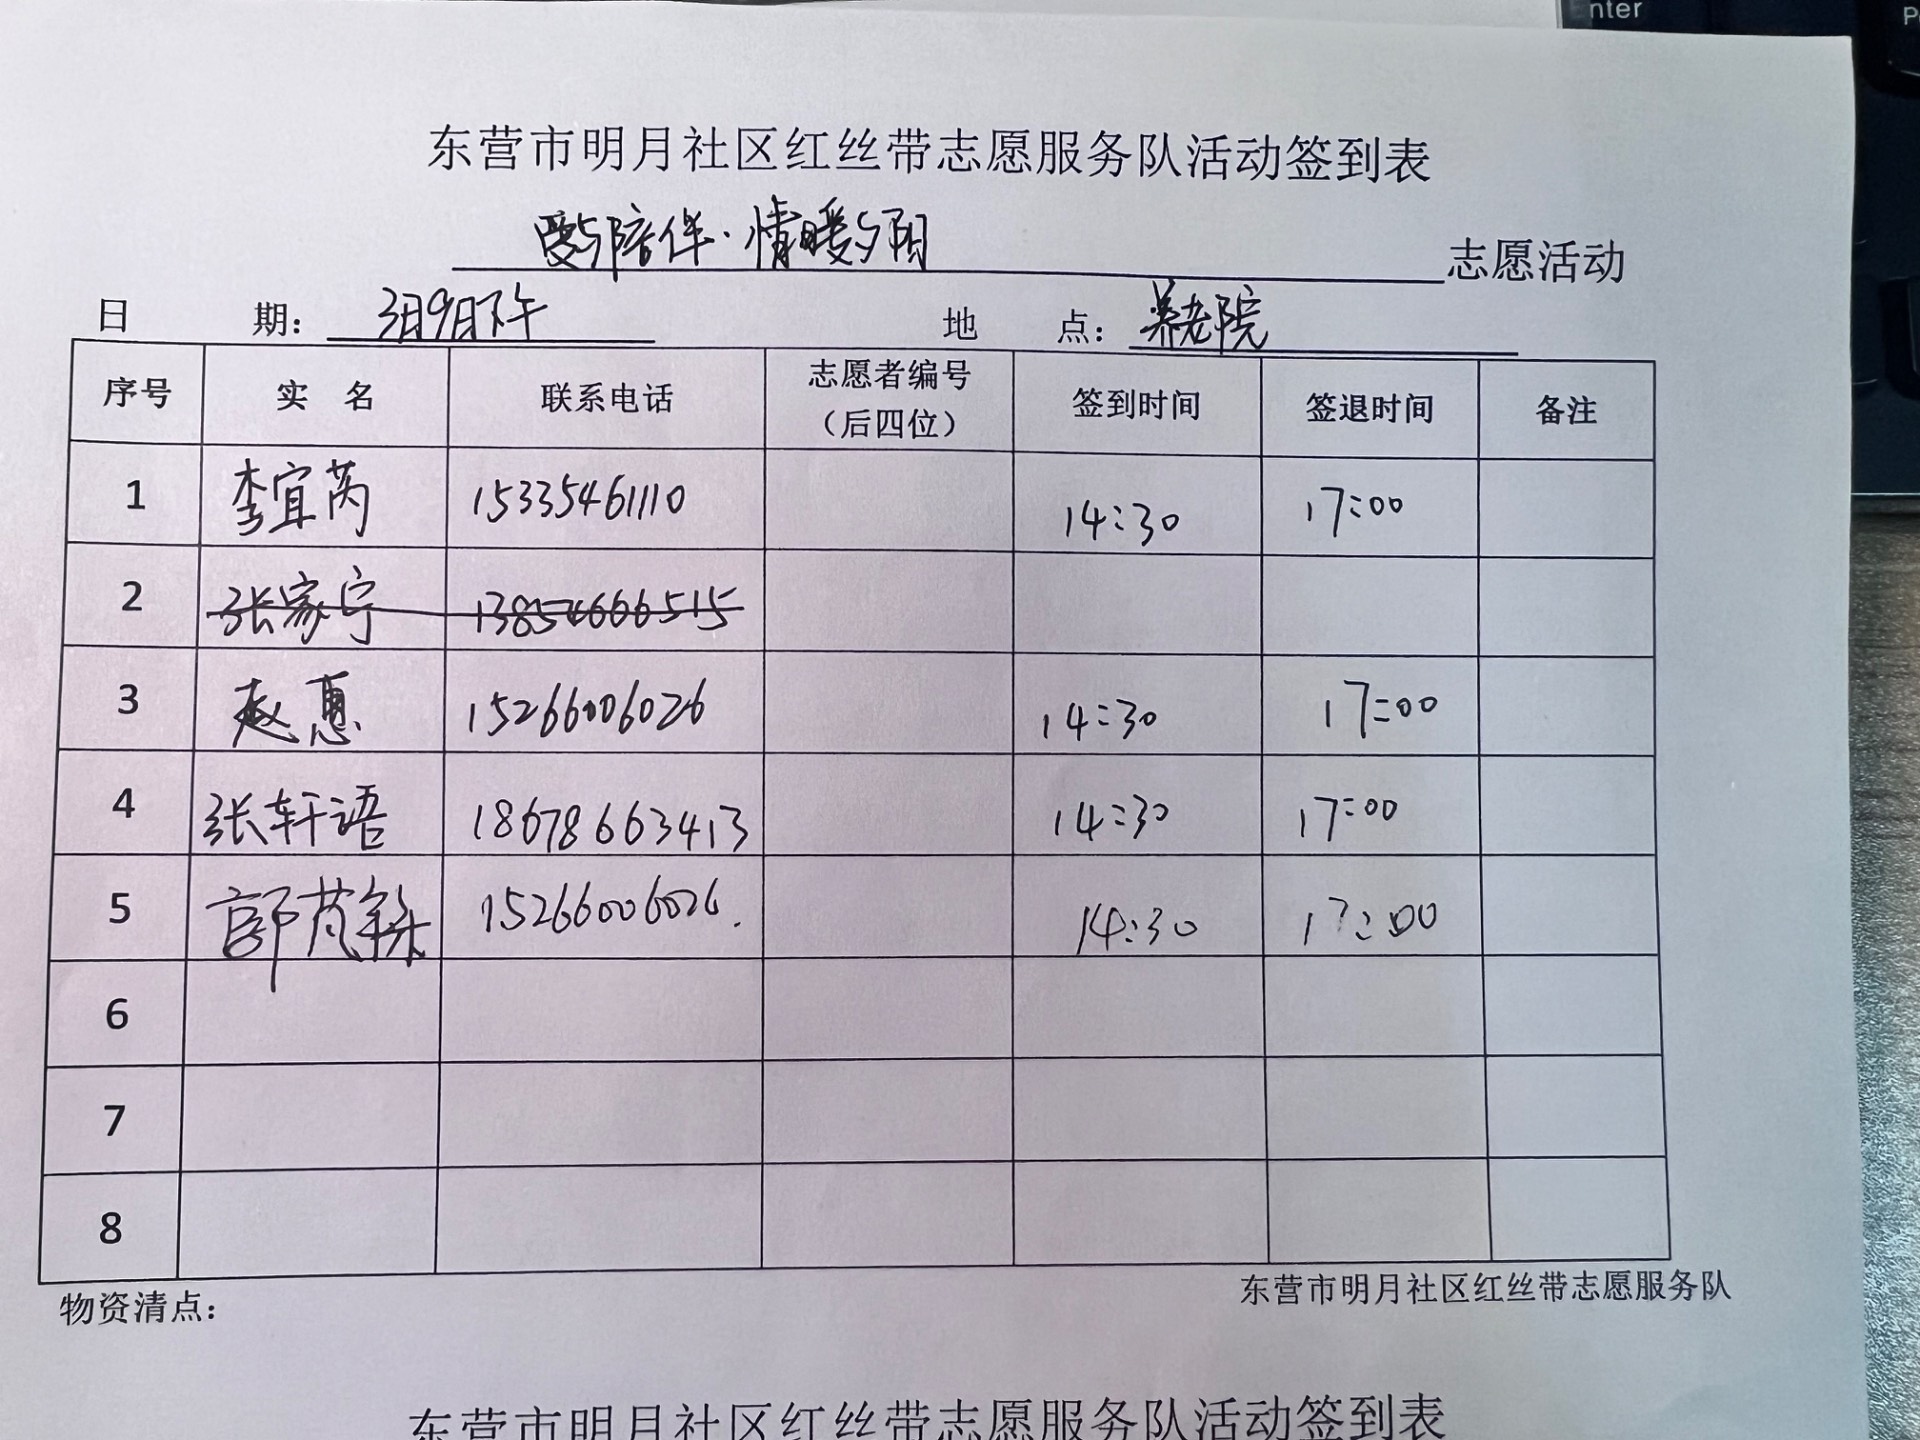 nter
P
东营市明月社区红丝带志愿服务队活动签到表
爱与陪伴·情暖夕阳 志愿活动
日 期： 3月9日下午 地 点： 养老院
序号 实 名 联系电话 志愿者编号（后四位） 签到时间 签退时间 备注
1 李宜芮 15335461110 14:30 17:00
2 张家宁 13854666515
3 赵惠 15266006026 14:30 17:00
4 张轩语 18678663413 14:30 17:00
5 郭芃 15266006026. 14:30 17:00
6
7
8
物资清点： 东营市明月社区红丝带志愿服务队
东营市明月社区红丝带志愿服务队活动签到表